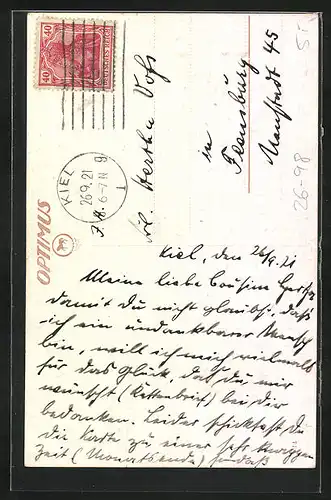 40 40
DEUTSCHES REICH
KIEL
26.9.21
6-7 N
OPTIMUS
Frl. Hertha Voß
in
Flensburg
Neustadt 45
26-98
Kiel, den 26/9.21
Meine liebe Cousine
damit du nicht glaubst, daß
ich ein undankbarer Mensch
bin, will ich mich vielmals
für das Glück, daß du mir
wünschst (Kettenbrief) bei dir
bedanken. Leider schicktest du
die Karte zu einer sehr
Zeit (Monatsende) sodaß